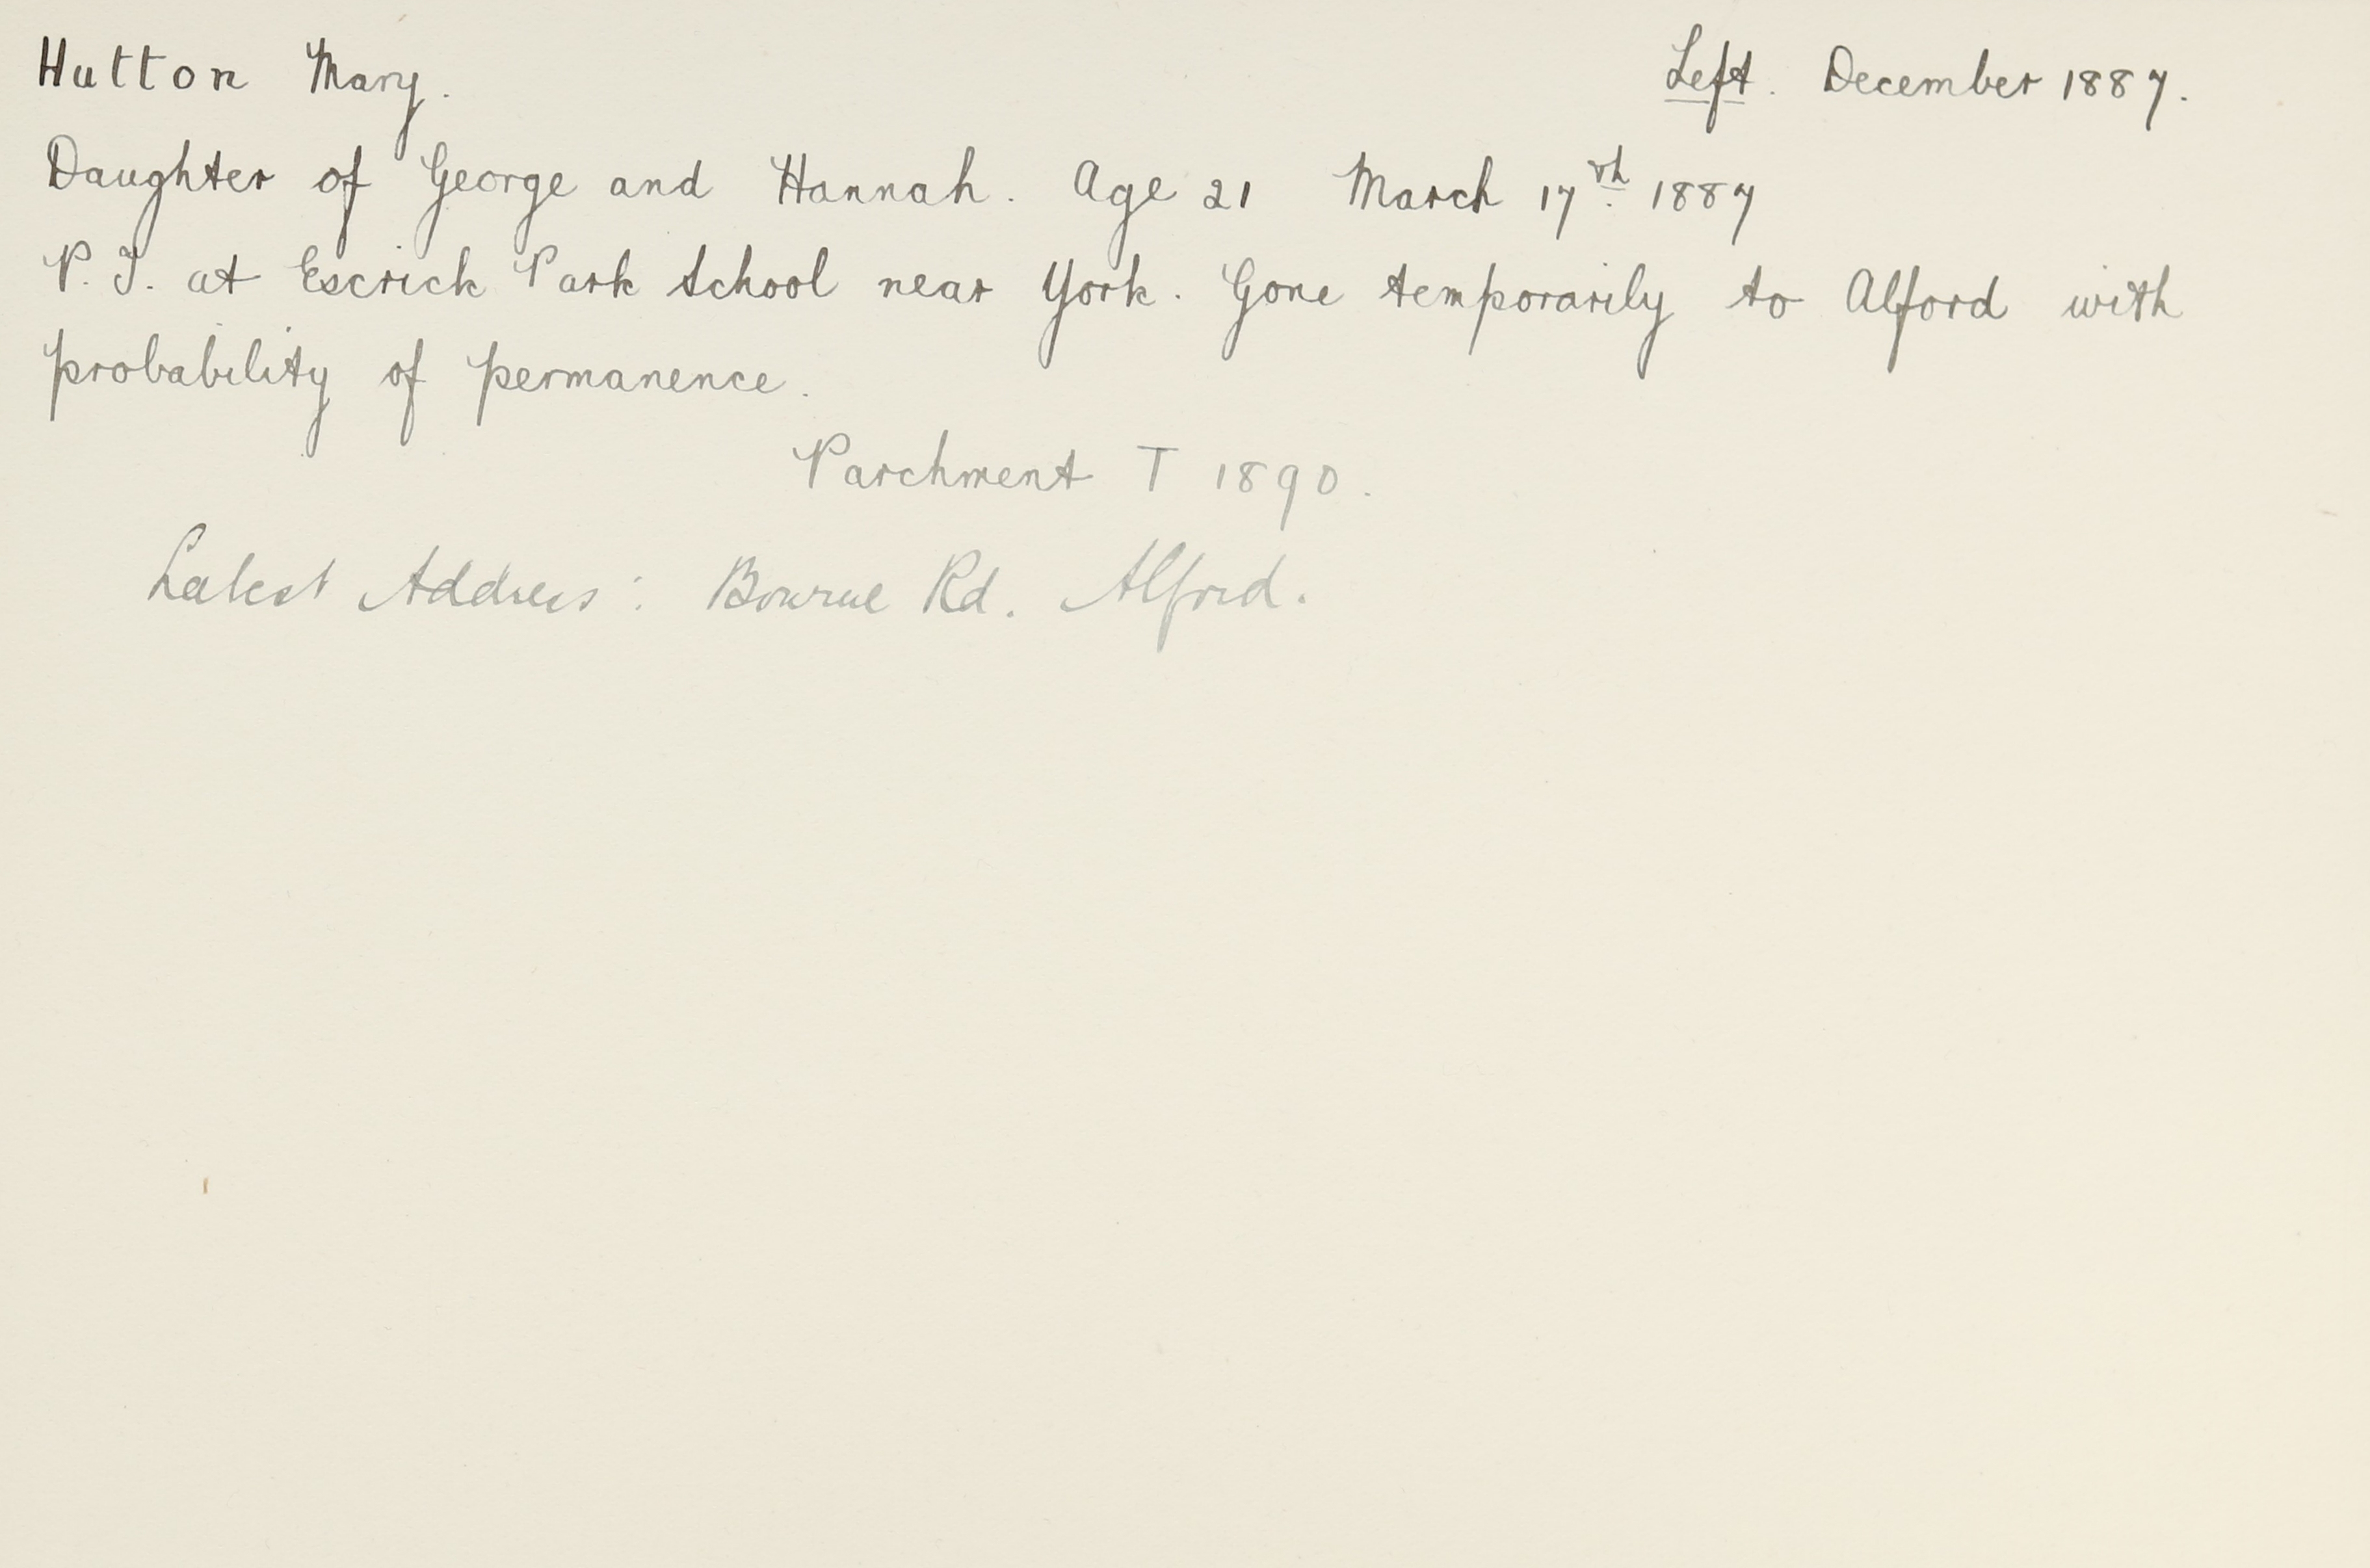 Hutton Mary. Left. December 1887.
Daughter of George and Hannah. Age 21 March 17th 1887
P.T. at Escrick Park School near York. Gone temporarily to Alford with
probability of permanence.
Parchment T 1890.
Latest Address: Bourne Rd. Alford.